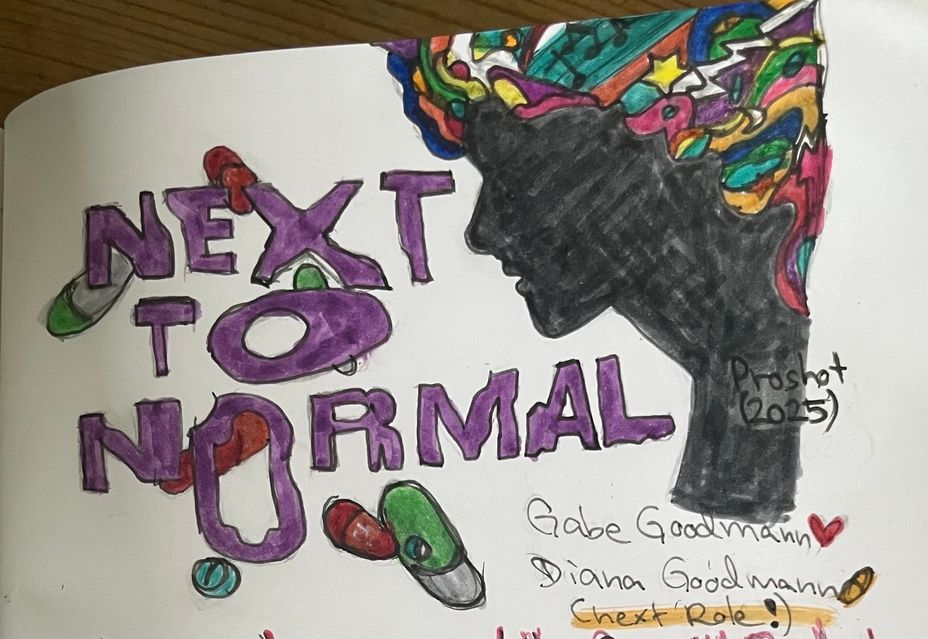 NEXT
TO
NORMAL
Proshot
(2025)
Gabe Goodmann
Diana Goodmann
(next Role!)